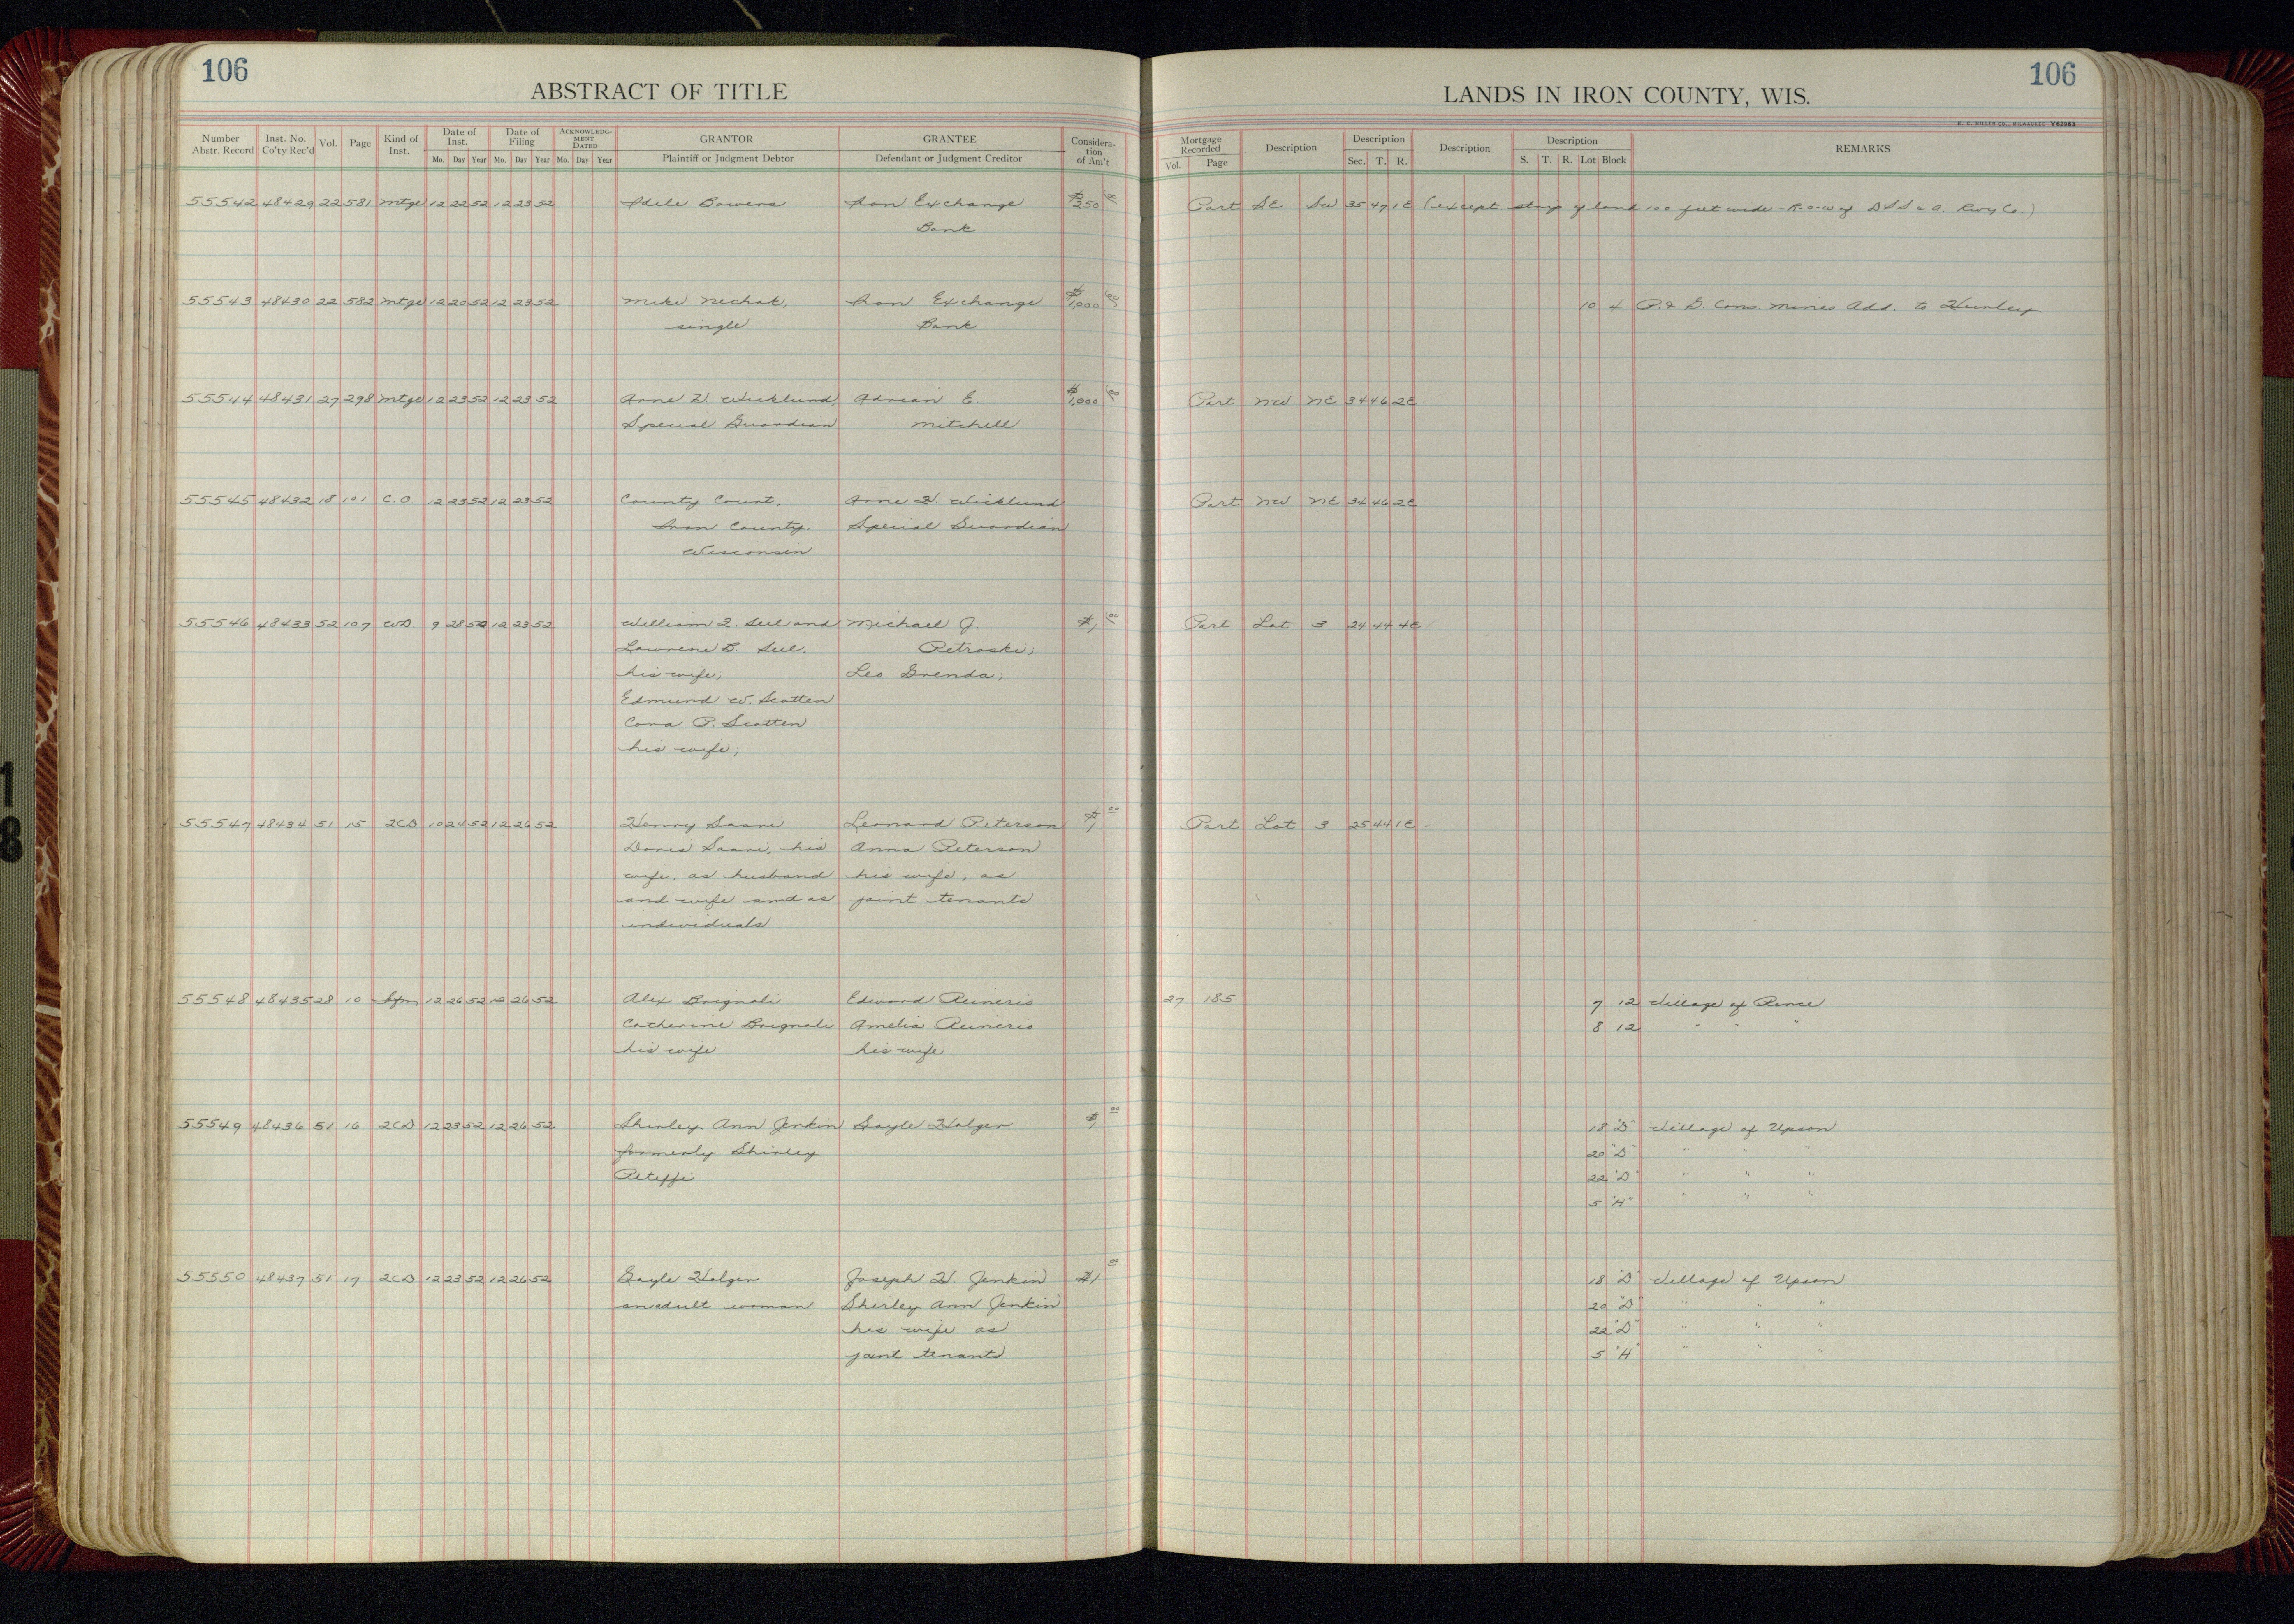 106
ABSTRACT OF TITLE
Number Abstr. Record Inst. No. Co'ty Rec'd Vol. Page Kind of Inst. Date of Inst. Mo. Day Year Date of Filing Mo. Day Year ACKNOWLEDGMENT DATED Mo. Day Year GRANTOR Plaintiff or Judgment Debtor GRANTEE Defendant or Judgment Creditor Consideration of Am't
LANDS IN IRON COUNTY, WIS.
106
Mortgage Recorded Vol. Page Description Description Sec. T. R. Description Description S. T. R. Lot Block REMARKS
55542 48429 22 581 Mtge 12 22 52 12 23 52 Adele Bowers Iron Exchange $250 00 Part SE SW 35 47 1E (except strip of land 100 feet wide - R-o-W of D S S & A. Rwy Co.)
Bank
55543 48430 22 582 Mtge 12 20 52 12 23 52 Mike Nechak, Iron Exchange $1,000 00 10 4 P. & B. Cons. Mines Add. to Hurley
single Bank
55544 48431 27 298 Mtge 12 23 52 12 23 52 Arne H. Wicklund, Adrian E. $1,000 00 Part NW NE 34 46 2E
Special Guardian Mitchell
55545 48432 18 101 C.O. 12 23 52 12 23 52 County Court, Arne H. Wicklund Part NW NE 34 46 2E
Iron County, Special Guardian
Wisconsin
55546 48433 52 107 WD. 9 28 52 12 23 52 William F. Seel and Michael J. $1 00 Part Lot 3 24 44 4E
Lawrene B. Seel, Petroski;
his wife; Leo Grenda;
Edmund W. Scatten
Cora P. Scatten
his wife;
55547 48434 51 15 2CD 10 24 52 12 26 52 Henry Saari Leonard Peterson $1 00 Part Lot 3 25 44 1E
Doris Saari, his Anna Peterson
wife, as husband his wife, as
and wife and as joint tenants
individuals
55548 48435 28 10 12 26 52 12 26 52 Alex Brignali Edward Reineris 27 185 7 12 Village of Pence
Catherine Brignali Amelia Reineris 8 12 " " "
his wife his wife
55549 48436 51 16 2CD 12 23 52 12 26 52 Shirley Ann Jenkin Gayle Holger $1 00 18 "D" Village of Upson
formerly Shirley 20 "D" " " "
Peteffi 22 "D" " " "
5 "H" " " "
55550 48437 51 17 2CD 12 23 52 12 26 52 Gayle Holger Joseph H. Jenkin $1 00 18 "D" Village of Upson
an adult woman Shirley Ann Jenkin 20 "D" " " "
his wife as 22 "D" " " "
joint tenants 5 "H" " " "